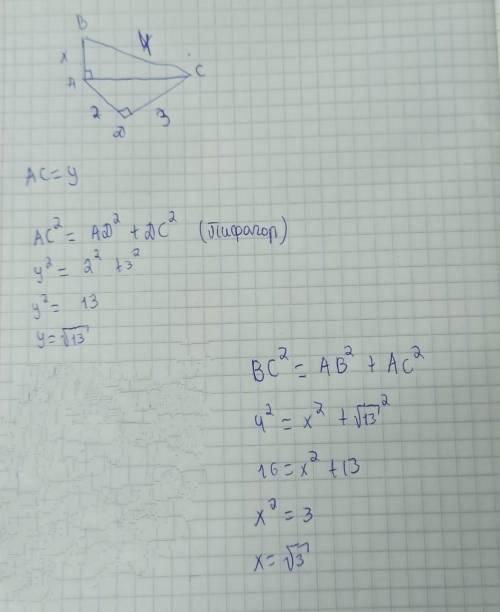 B
x 4
A C
2 3
D
AC = y
AC² = AD² + DC² (Пифагор)
y² = 2² + 3²
y² = 13
y = √13
BC² = AB² + AC²
4² = x² + √13²
16 = x² + 13
x² = 3
x = √3